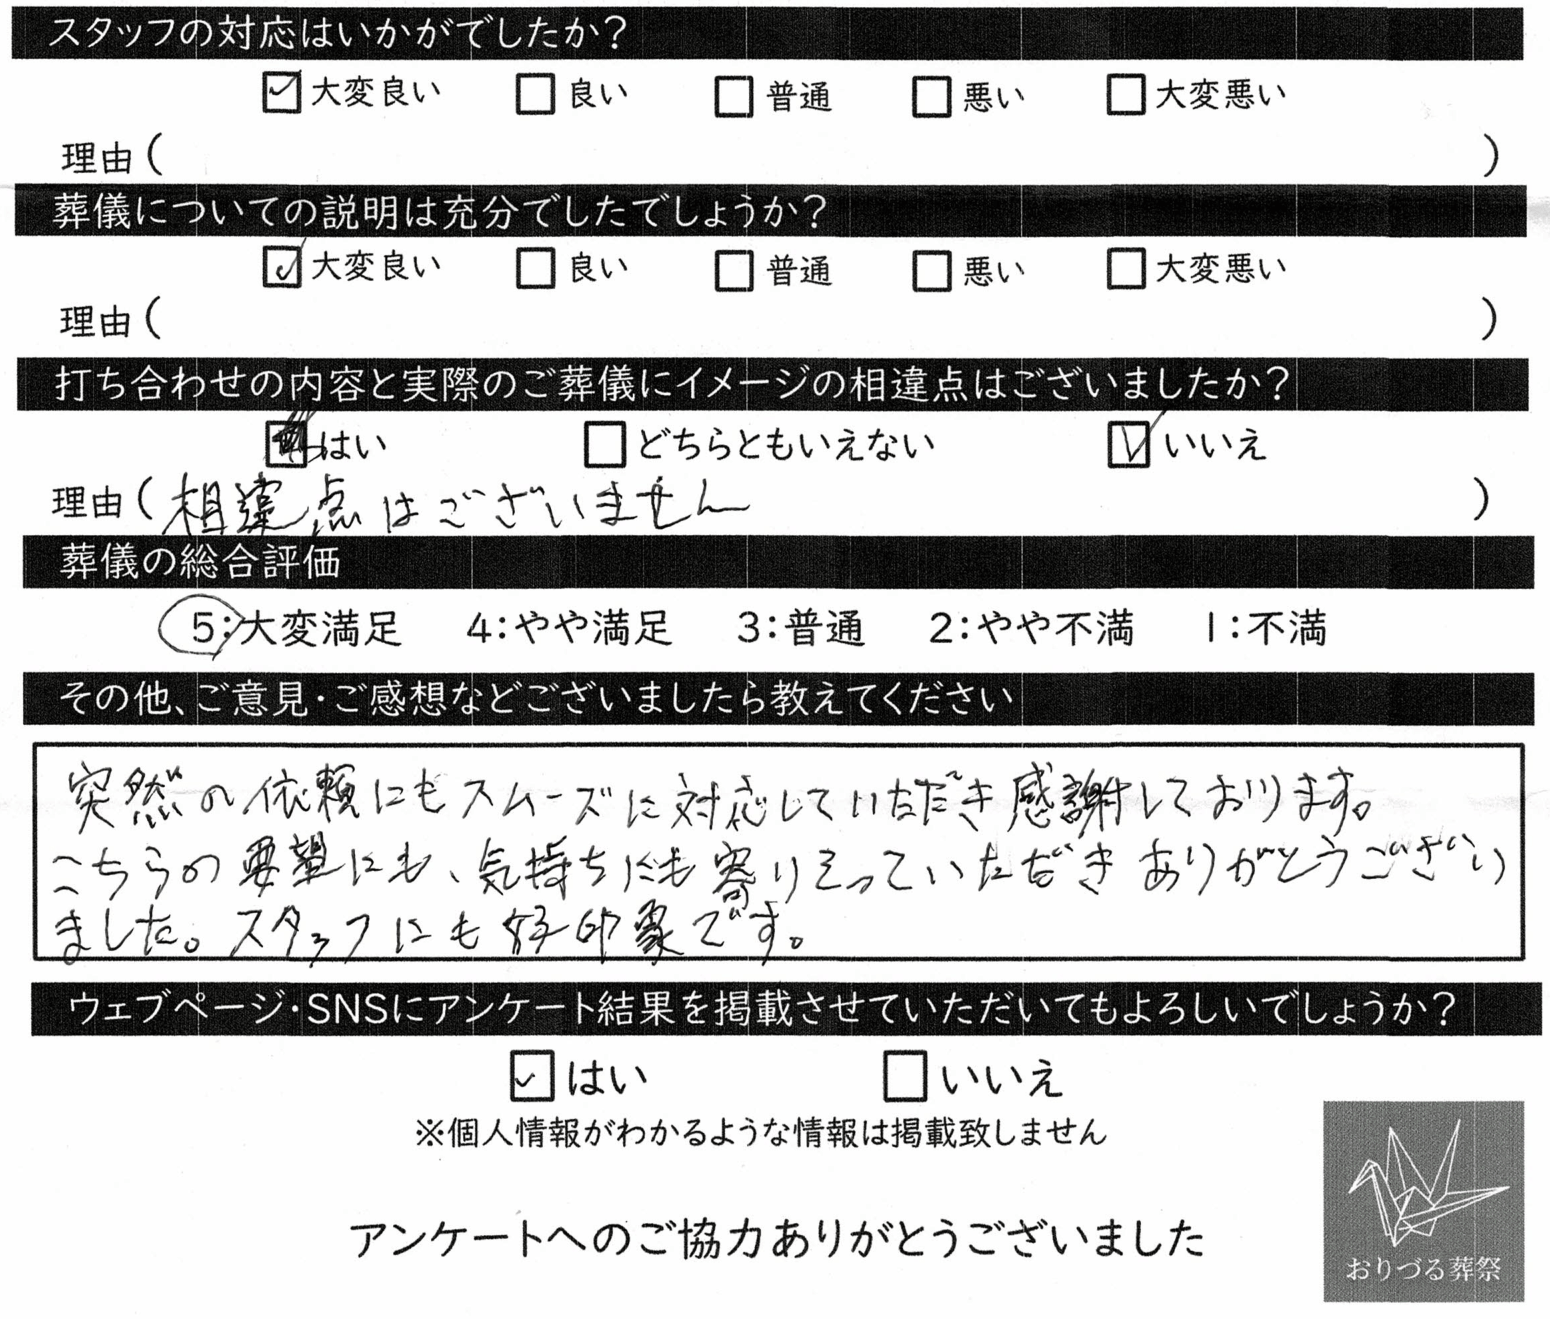 スタッフの対応はいかがでしたか?
大変良い 良い 普通 悪い 大変悪い
理由( )
葬儀についての説明は充分でしたでしょうか?
大変良い 良い 普通 悪い 大変悪い
理由( )
打ち合わせの内容と実際のご葬儀にイメージの相違点はございましたか?
はい どちらともいえない いいえ
理由(相違点はございません )
葬儀の総合評価
5:大変満足 4:やや満足 3:普通 2:やや不満 1:不満
その他、ご意見・ご感想などございましたら教えてください
突然の依頼にもスムーズに対応していただき感謝しております。
こちらの要望にも、気持ちにも寄りそっていただきありがとうござい
ました。スタッフにも好印象です。
ウェブページ・SNSにアンケート結果を掲載させていただいてもよろしいでしょうか?
はい いいえ
※個人情報がわかるような情報は掲載致しません
アンケートへのご協力ありがとうございました
おりづる葬祭